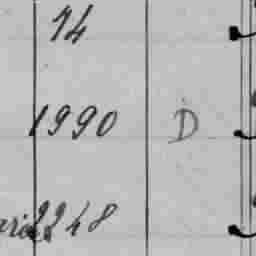 14
1990 D
2248